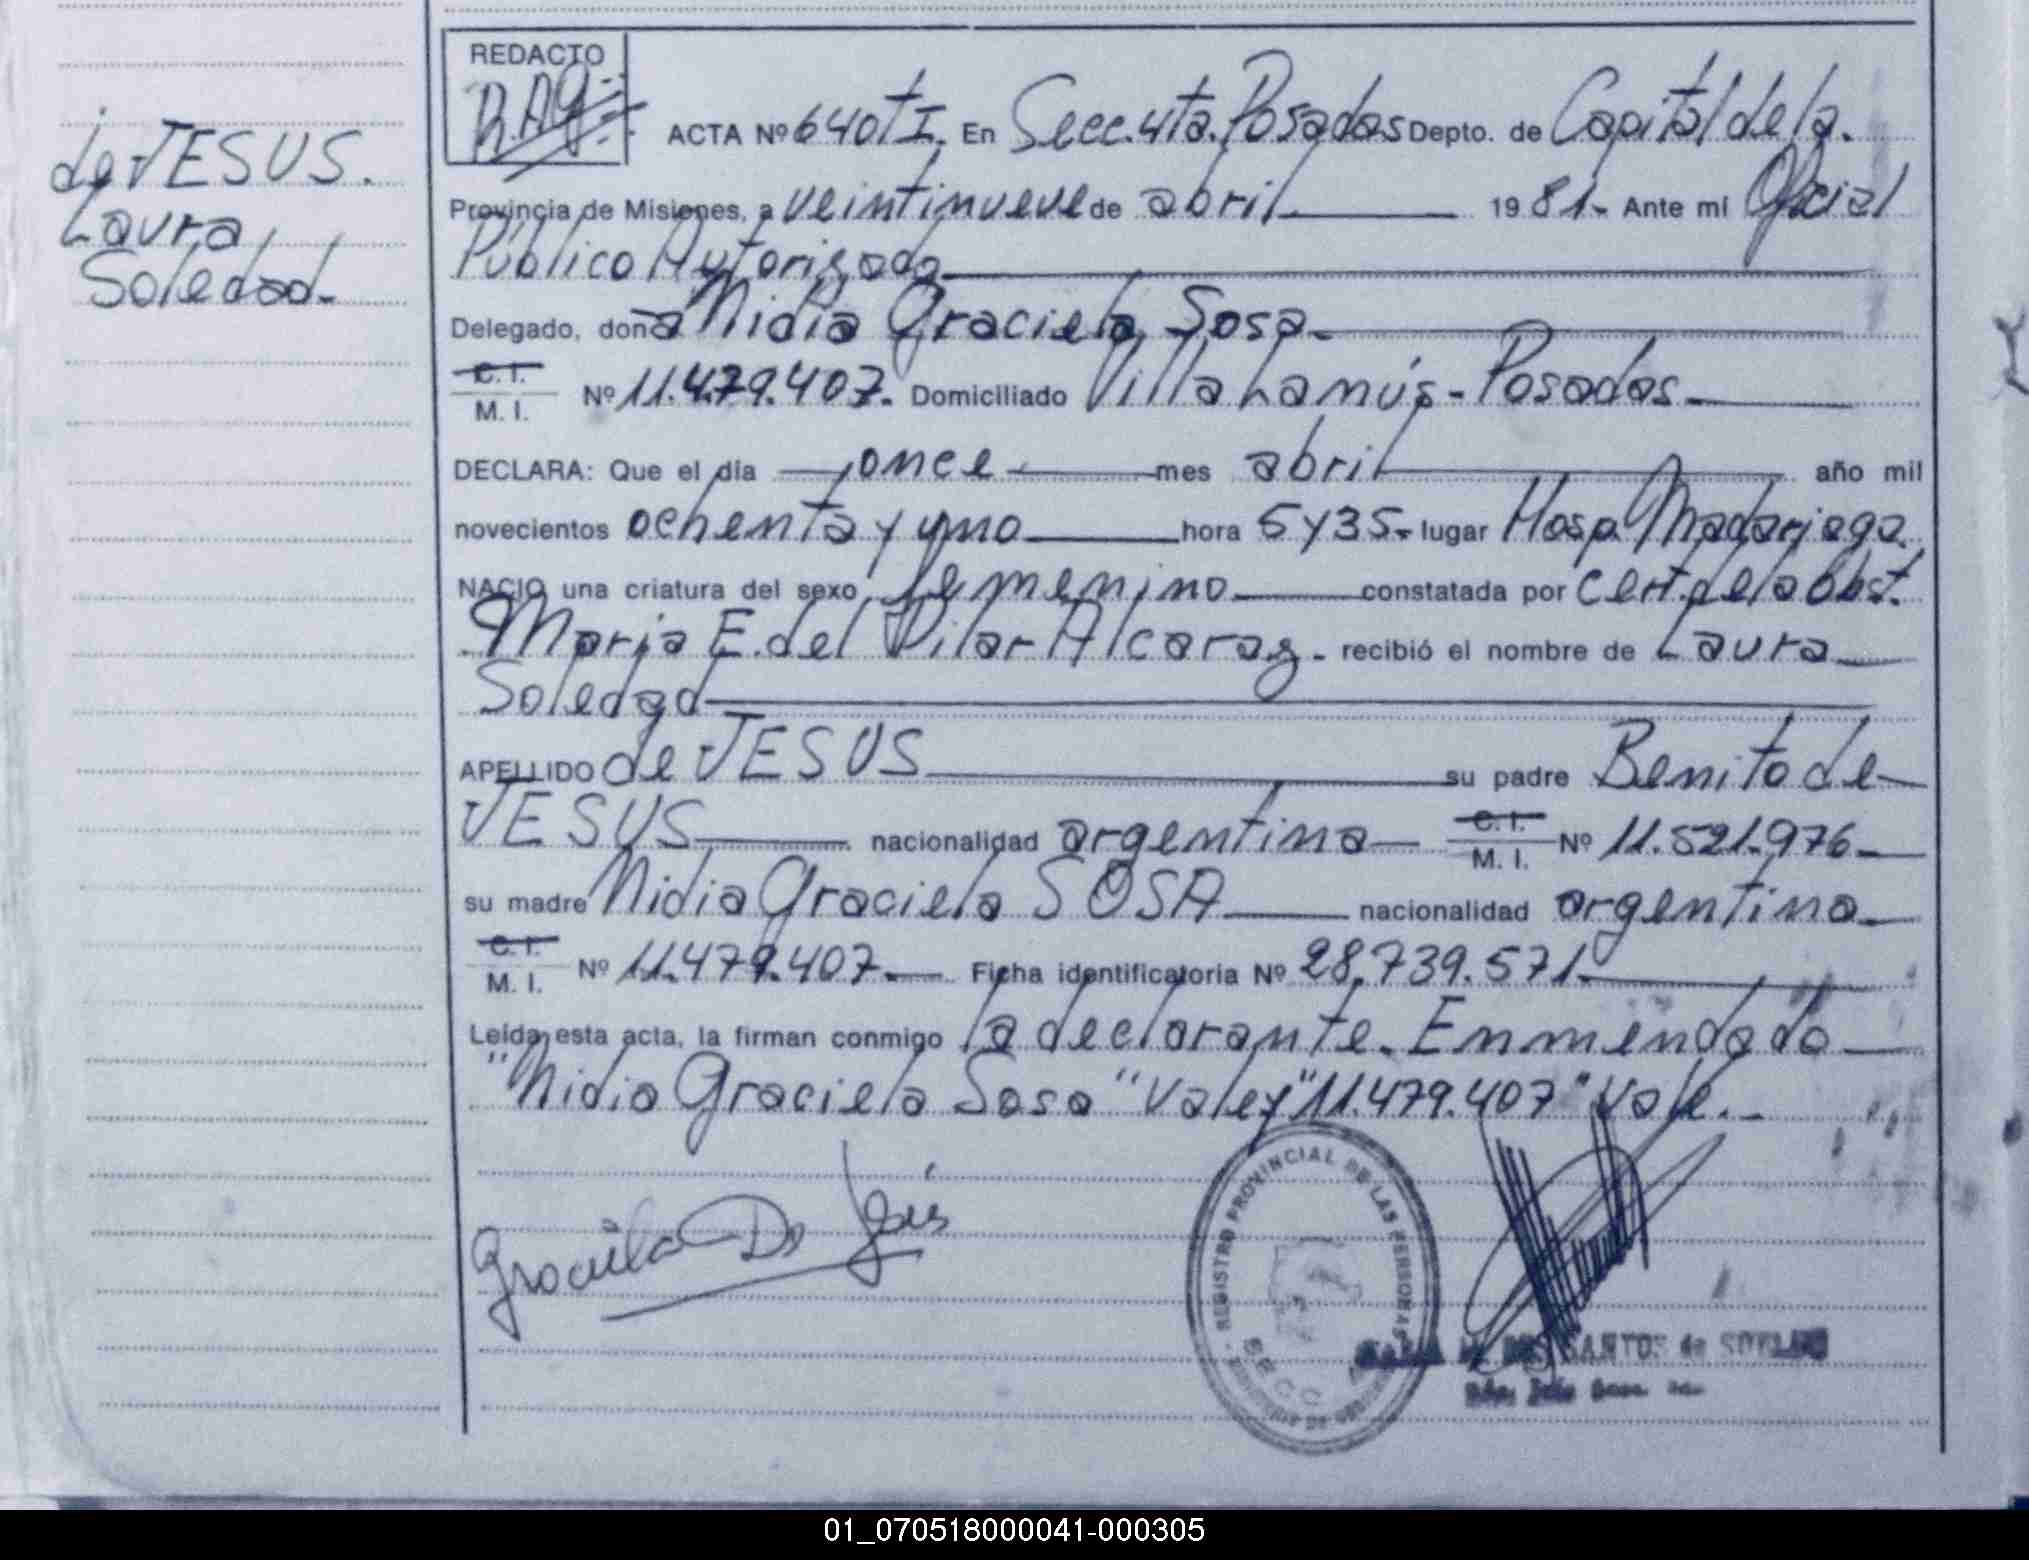 de JESUS.
Laura
Soledad.
REDACTO
ACTA Nº 640 t I. En Secc. 4ta. Posadas Depto. de Capital de la.
Provincia de Misiones, a veintinueve de abril 1981.- Ante mi Oficial
Público Autorizado
Delegado, don a Nidia Graciela Sosa.
C. I.
M. I. Nº 11.479.407. Domiciliado Villa Lanús - Posadas.
DECLARA: Que el día once mes abril año mil
novecientos ochenta y uno hora 5 y 35.- lugar Hosp. Madariaga.
NACIO una criatura del sexo femenino constatada por Cert. de la Obst.
Maria E. del Pilar Alcaraz. recibió el nombre de Laura
Soledad
APELLIDO de JESUS su padre Benito de
JESUS nacionalidad argentina C. I.
M. I. Nº 11.521.976
su madre Nidia Graciela SOSA nacionalidad argentina
C. I.
M. I. Nº 11.479.407. Ficha identificatoria Nº 28.739.571.
Leída esta acta, la firman conmigo la declarante. Enmendado
"Nidia Graciela Sosa" Vale y "11.479.407" Vale.
Graciela De Jesús
REGISTRO PROVINCIAL DE LAS PERSONAS
SANTOS de
01_070518000041-000305